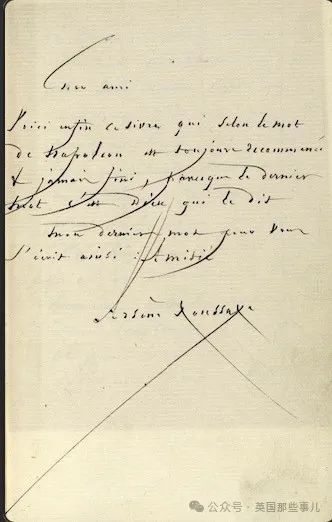 Cher ami
Voici enfin ce livre qui selon le mot
de Napoleon est toujours recommencé
& jamais fini, parceque le dernier
mot c'est Dieu qui le dit
mon dernier mot pour vous
s'écrit ainsi : Amitié
Arsène Houssaye
公众号 · 英国那些事儿